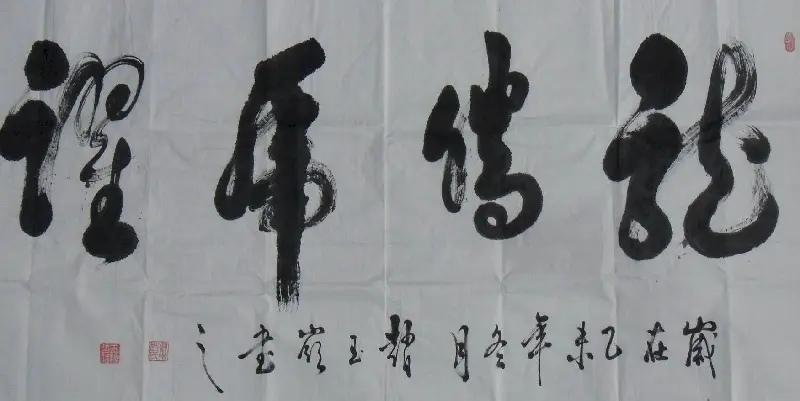 龍騰虎躍
歲在乙未年冬月趙玉嶺書之